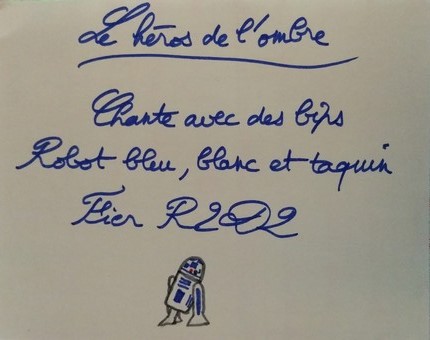 Le héros de l'ombre
Chante avec des bips
Robot bleu, blanc et taquin
Fier R2D2